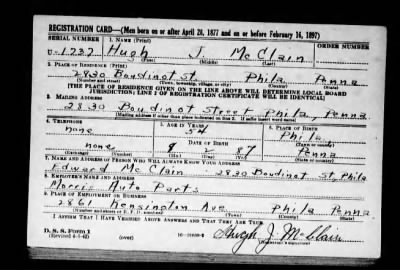 REGISTRATION CARD—(Men born on or after April 28, 1877 and on or before February 16, 1897)
SERIAL NUMBER 1. NAME (Print)
U-1737 Hugh J. McClain
(First) (Middle) (Last)
2. PLACE OF RESIDENCE (Print)
2830 Boudinot St Phila Penna
(Number and street) (Town, township, village, or city) (County) (State)
[THE PLACE OF RESIDENCE GIVEN ON THE LINE ABOVE WILL DETERMINE LOCAL BOARD
JURISDICTION; LINE 2 OF REGISTRATION CERTIFICATE WILL BE IDENTICAL]
3. MAILING ADDRESS
2830 Boudinot Street Phila, Penna
[Mailing address if other than place indicated on line 2. If same insert word same]
4. TELEPHONE 5. AGE IN YEARS 6. PLACE OF BIRTH
none 54 Phila
DATE OF BIRTH (Town or county)
none 9 2 87 Penna
(Exchange) (Number) (Mo.) (Day) (Yr.) (State or country)
7. NAME AND ADDRESS OF PERSON WHO WILL ALWAYS KNOW YOUR ADDRESS
Edward McClain 2830 Boudinot St, Phila
8. EMPLOYER'S NAME AND ADDRESS
Morris Auto Parts
9. PLACE OF EMPLOYMENT OR BUSINESS
2861 Kensington Ave Phila Penna
(Number and street or R. F. D. number) (Town) (County) (State)
I AFFIRM THAT I HAVE VERIFIED ABOVE ANSWERS AND THAT THEY ARE TRUE.
D. S. S. FORM 1
(Revised 4-1-42) (over) Hugh J. McClain